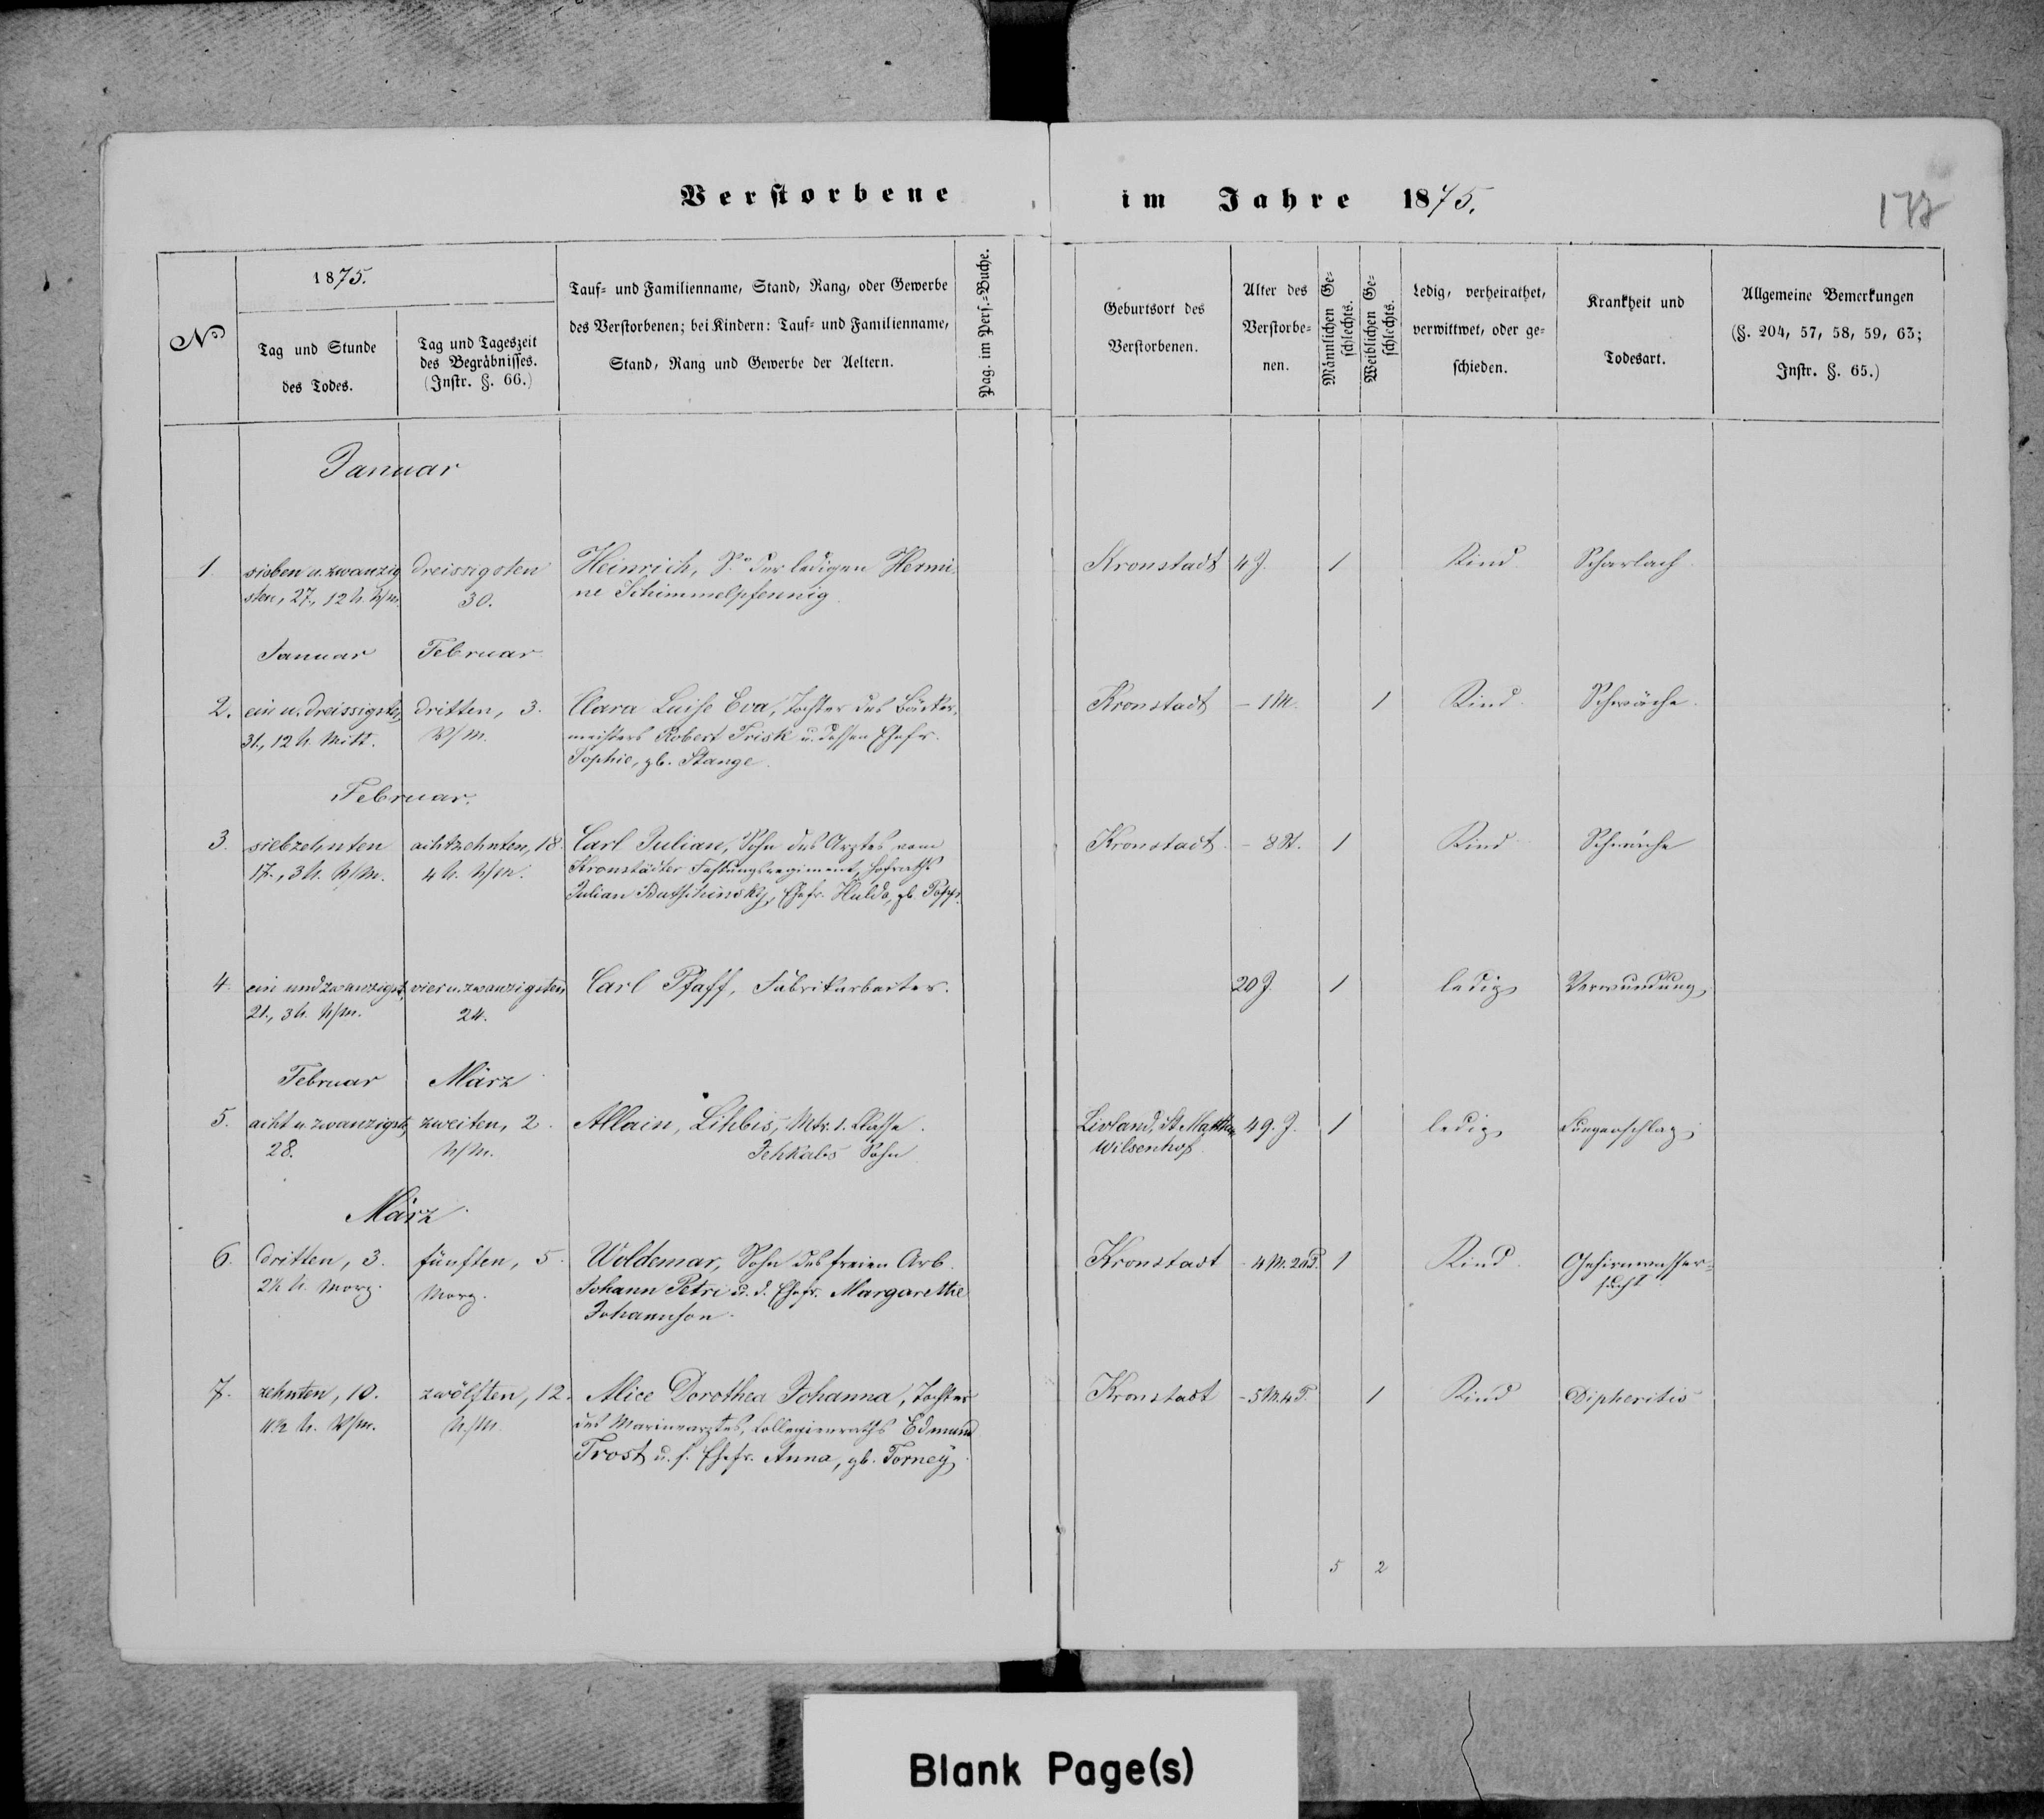 Verstorbene im Jahre 1875.
178
No
1875.
Tag und Stunde
des Todes.
Tag und Tageszeit
des Begräbnisses.
(Instr. §. 66.)
Tauf- und Familienname, Stand, Rang, oder Gewerbe
des Verstorbenen; bei Kindern: Tauf- und Familienname,
Stand, Rang und Gewerbe der Aeltern.
Pag. im Pers.-Buche.
Geburtsort des
Verstorbenen.
Alter des
Verstorbe-
nen.
Männlichen Ge-
schlechts.
Weiblichen Ge-
schlechts.
Ledig, verheirathet,
verwittwet, oder ge-
schieden.
Krankheit und
Todesart.
Allgemeine Bemerkungen
(§. 204, 57, 58, 59, 63;
Instr. §. 65.)
Januar
1. sieben u. zwanzig dreissigsten Heinrich, S. der ledigen Hermi- Kronstadt 4 J. 1 Kind Scharlach
sten, 27., 12 U. N/M. 30. ne Schimmelpfennig
Januar Februar
2. ein u. dreissigsten dritten, 3. Clara Luise Eva, Tochter des Bäcker- Kronstadt - 1 M. 1 Kind Schwäche.
31., 12 U. Mitt. N/M. meisters Robert Frisk u. dessen Ehefr.
Sophie, gb. Stange.
Februar.
3. siebzehnten achtzehnten, 18. Carl Julian, Sohn des Arztes vom Kronstadt. - 8 St. 1 Kind Schwäche
17., 3 U. N/M. 4 U. N/M. Kronstädter Festungsregiment, Hofraths
Julian Butschinsky, Ehefr. Hulda, gb.
4. ein und zwanzigst, vier u. zwanzigsten Carl Pfaff, Fabrikarbeiter. 20 J. 1 ledig Verwundung
21., 3 U. N/M. 24.
Februar März
5. acht u. zwanzigst, zweiten, 2. Allain, Lihbis, Mtr. 1. Classe. Livland, St. Matthiä 49. J. 1 ledig Lungenschlag
28. N/M. Jehkabs Sohn Wilsenhof
März
6. dritten, 3. fünften, 5. Woldemar, Sohn des freien Arb. Kronstadt - 4 M. 20 T. 1 Kind Gehirnwasser-
2½ U. Morg. Morg. Johann Petri u. d. Ehefr. Margarethe sucht
Johannson.
7. zehnten, 10. zwölften, 12. Alice Dorothea Johanna, Tochter Kronstadt - 5 M. 4 T. 1 Kind Dipheritis
11½ U. V/M. N/M. des Marinearztes, Collegienraths Edmund
Trost u. s. Ehefr. Anna, gb. Torney.
5 2
Blank Page(s)